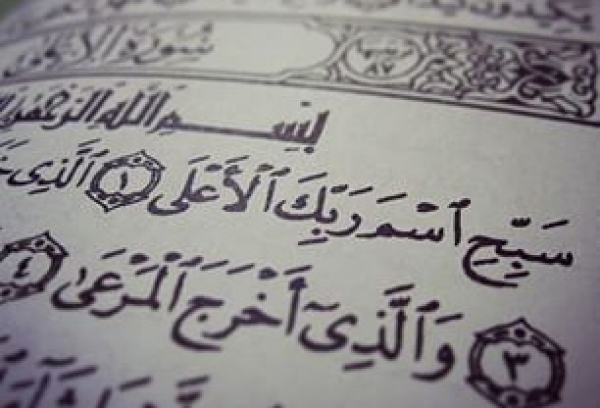 سُورَةُ الأَعْلَى ٨٧
بِسْمِ ٱللَّهِ ٱلرَّحْمَٰنِ
سَبِّحِ ٱسْمَ رَبِّكَ ٱلْأَعْلَى ١ ٱلَّذِى
٣ وَٱلَّذِىٓ أَخْرَجَ ٱلْمَرْعَىٰ ٤